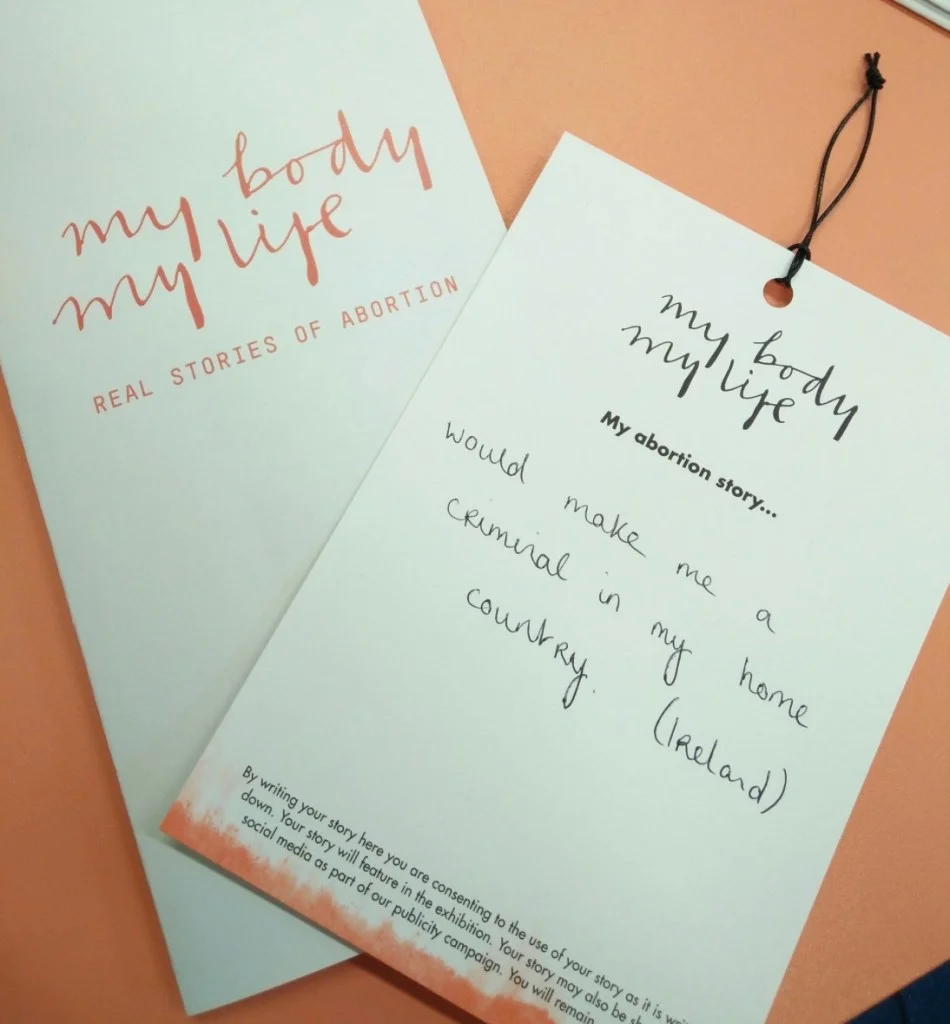 my body
my life
REAL STORIES OF ABORTION
my body
my life
My abortion story...
would make me a
criminal in my home
country. (Ireland)
By writing your story here you are consenting to the use of your story as it is
down. Your story will feature in the exhibition. Your story may also be
social media as part of our publicity campaign. You will remain